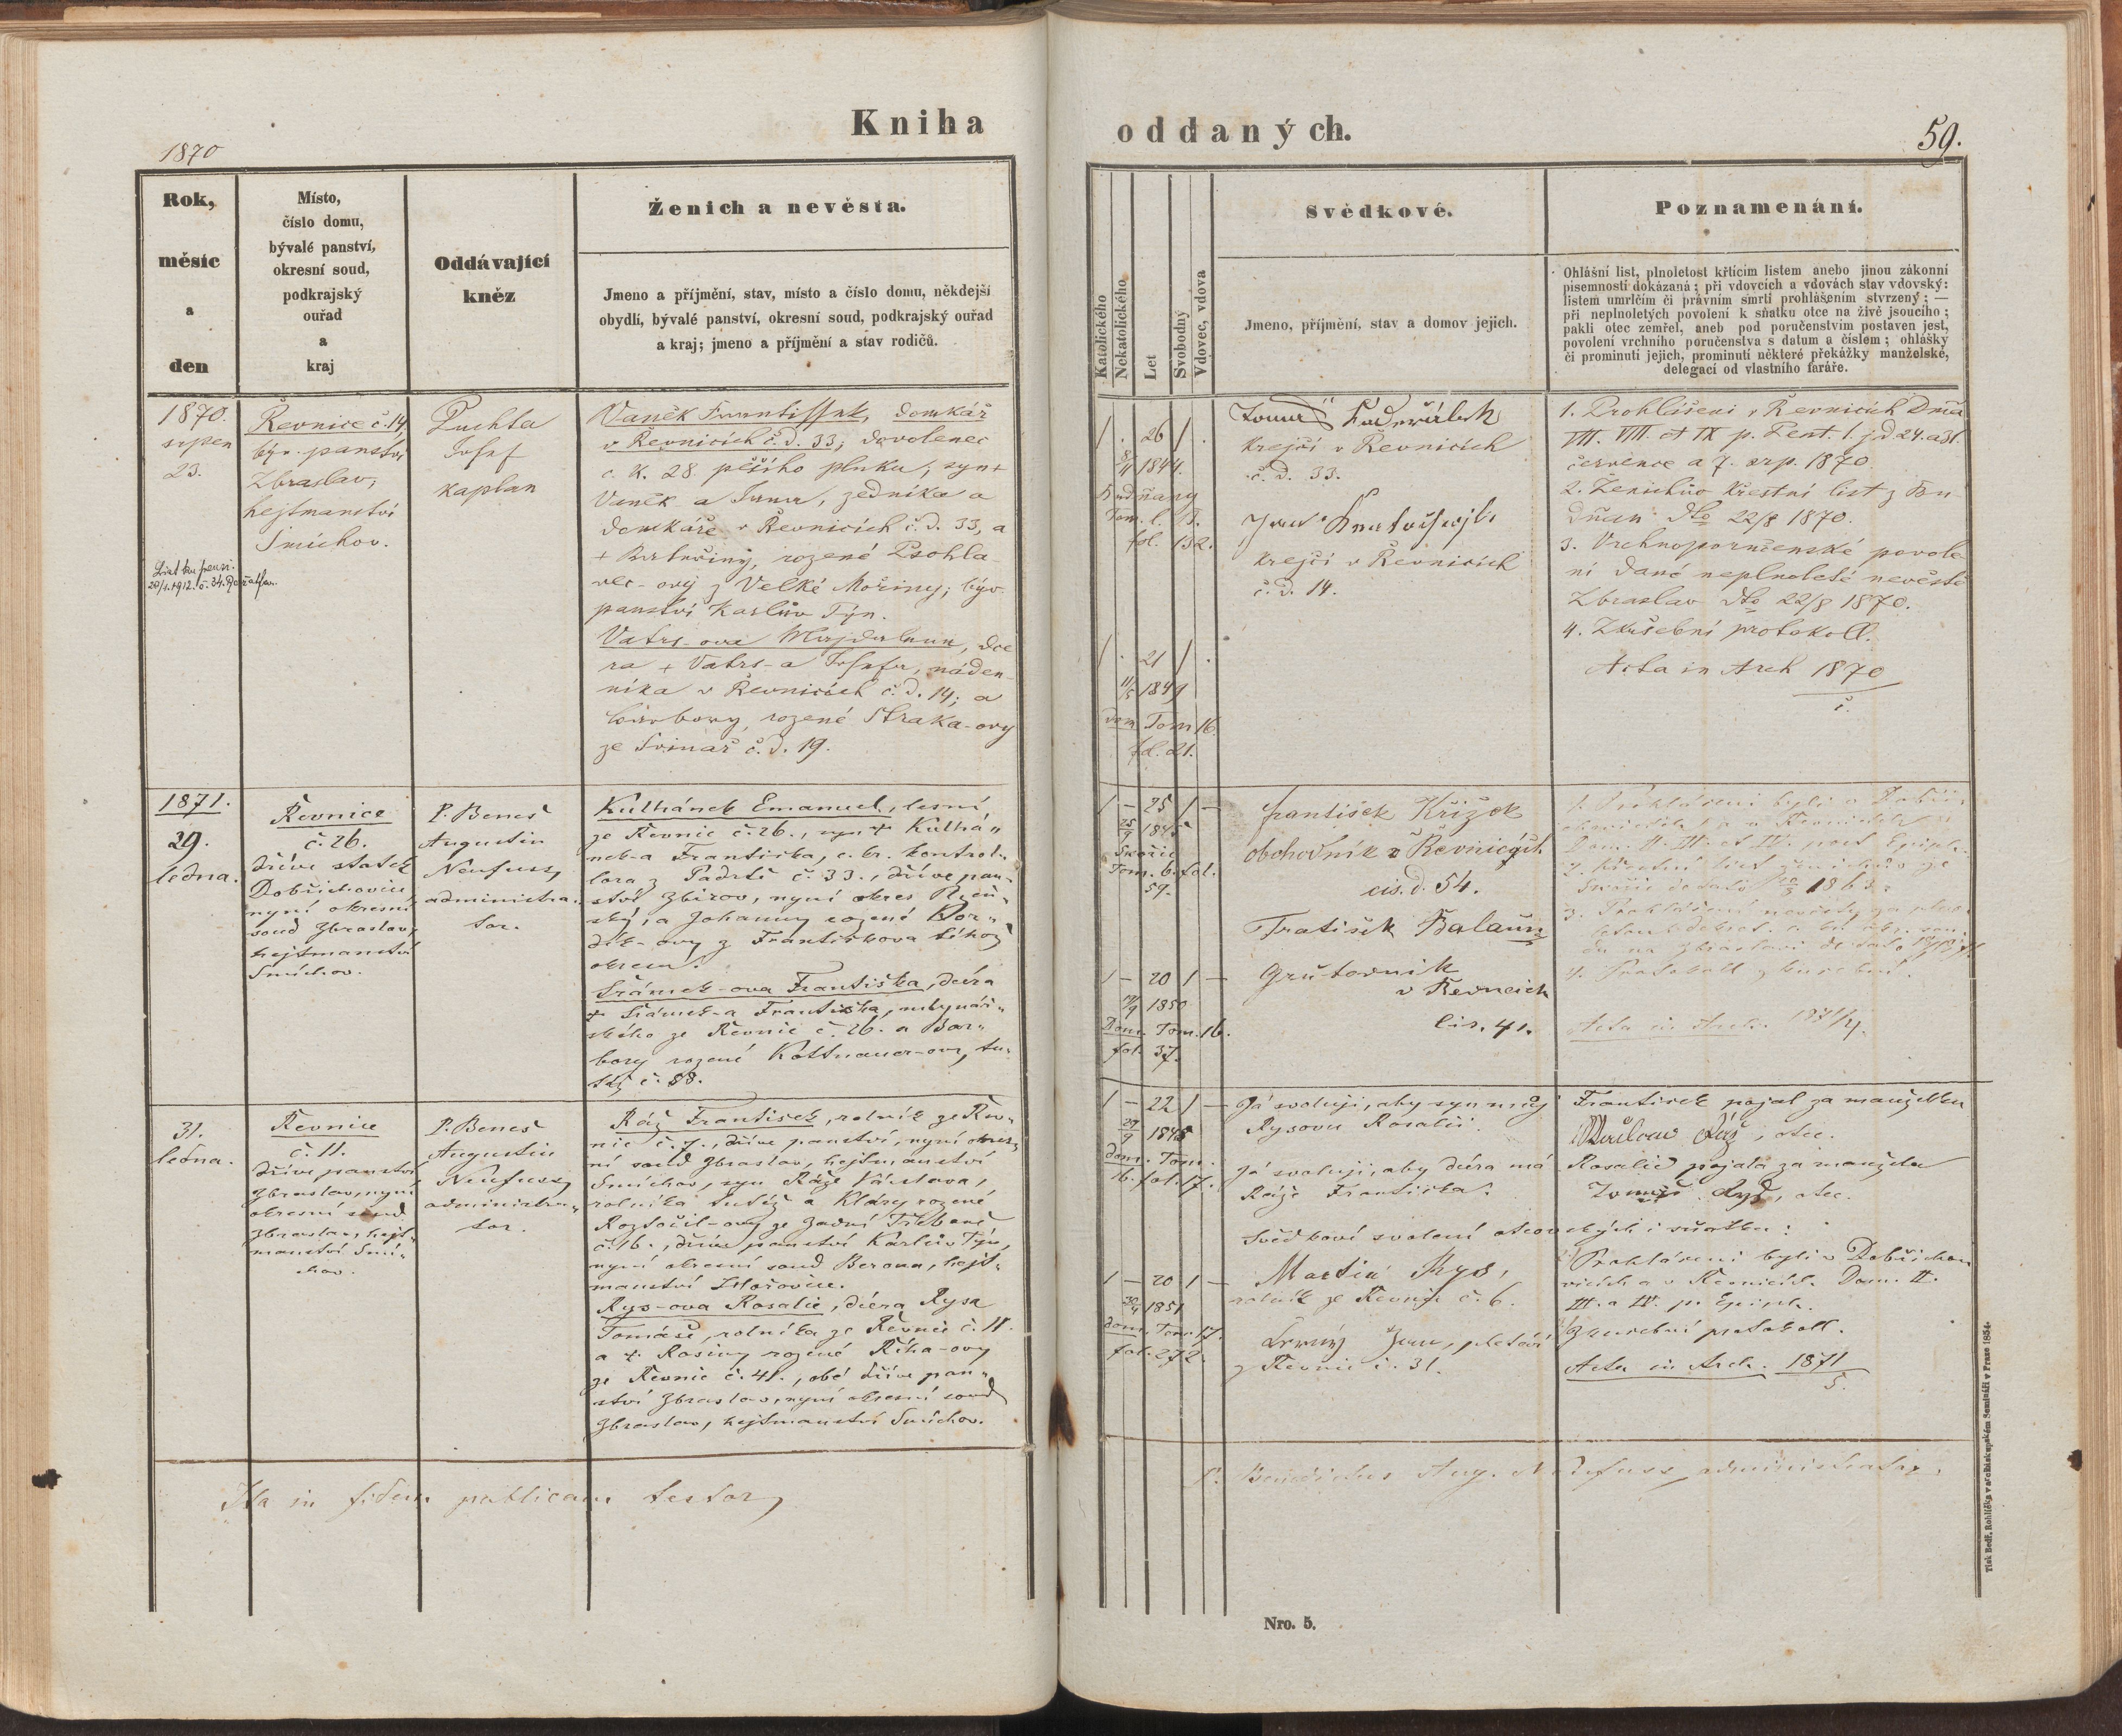 Kniha
oddaných.
1870
59.
Rok,
měsíc
a
den
Místo,
číslo domu,
bývalé panství,
okresní soud,
podkrajský
ouřad
a
kraj
Oddávající
kněz
Ženich a nevěsta.
Jmeno a příjmění, stav, místo a číslo domu, někdejší
obydlí, bývalé panství, okresní soud, podkrajský ouřad
a kraj; jmeno a příjmění a stav rodičů.
Katolického
Nekatolického
Let
Svobodný
Vdovec, vdova
Svědkové.
Jmeno, příjmění, stav a domov jejich.
Poznamenání.
Ohlášní list, plnoletost křtícím listem anebo jinou zákonní
písemností dokázaná; při vdovcích a vdovách stav vdovský:
listem umrlčím či právním smrti prohlášením stvrzený; —
při neplnoletých povolení k sňatku otce na živě jsoucího;
pakli otec zemřel, aneb pod poručenstvím postaven jest,
povolení vrchního poručenstva s datum a číslem; ohlášky
či prominutí jejich, prominutí některé překážky manželské,
delegací od vlastního faráře.
1870.
srpen
23.
Řevnice č. 14,
býv. panství
Zbraslav,
hejtmanství
Smíchov.
Puchta
Josef
kaplan
Vaněk Frantissek, domkář
v Řevnicích č. d. 33, dovolenec
c. k. 28. pěšího pluku, syn +
Vaněk a Jana, zedníka a
domkáře v Řevnicích č. d. 33, a
rozené
ovy z Velké Mořiny, býv.
panství Karlův Týn.
Vatrs-ova Majdalena, dce
ra + Vatrs-a Josefa, náden
níka v Řevnicích č. d. 14, a
rozené Straka-ovy
ze Svinař č. d. 19.
1 . 26 1 .
8/4 1844.
fol. 132.
1 . 21 1 .
11/5 1849
dom. Tom 16.
fol. 21.
krejčí v Řevnicích
č. d. 33.
krejčí v Řevnicích
č. d. 14.
1. Prohlášeni v Řevnicích Dnia
VII. VIII. et IX p. Pent. t. j. d 24. a 31.
července a 7. srp. 1870.
2. Ženichův křestní list z Bu
dto 22/8 1870.
3. Vrchnoporučenské povole
ní dané neplnoleté nevěstě
Zbraslav dto 22/8 1870.
4. Zkušební protokoll.
Acta in Arch 1870
1871.
29.
ledna.
Řevnice
č. 26.
dříve statek
Dobřichovice
nyní okresní
soud Zbraslav,
hejtmanství
Smíchov.
P. Beneš
Augustin
Neufuss,
administra-
tor.
Kulhánek Emanuel, lesní
ze Řevnic č. 26., syn + Kulhá-
nek-a Františka, c. kr. kontrol-
lora z Padrtě č. 33., dříve pan-
ství Zbirov, nyní okres
a Johanny rozené
ovy z Františkova téhož
okresu.
Šrámek-ova Františka, dcéra
+ Šrámek-a Františka, mlynář-
ského ze Řevnic č. 26. a Bar-
bory rozené Kottnauer-ovy, tu-
též č. 88.
1 — 25 1 —
25/9 1845
Skořic
Tom. 6. fol.
59.
1 — 20 1 —
1850
Dom. Tom. 16.
fol. 37.
František Křižek
obchodník z Řevnicých
cis. d. 54.
Fratišek Balaún
v Revneich
čis. 41.
1. Prohlášeni byli v Dobři-
chovicích, a v Řevnicích
Dom. II. III. et IV. post Epiph.
2. Křestní list ženichův ze
Skořic de dato 1863.
4. Protokoll zkušební.
Acta in Arch. 1871/4.
31.
ledna.
Řevnice
č. 11.
dříve panství
Zbraslav, nyní
okresní soud
Zbraslav, hejt-
manství Smí-
chov.
P. Beneš
Augustin
Neufuss,
administra-
tor.
Ráž František, rolník ze Řev-
nic č. 7., dříve panství, nyní okres-
ní soud Zbraslav, hejtmanství
Smíchov, syn Ráže Václava,
rolníka tutéž a Kláry rozené
Roztočil-ovy ze Zadní Třebaně
č. 16., dříve panství Karlův Týn,
nyní okresní soud Beroun, hejt-
manství Hořovice.
Rys-ova Rosalie, dcéra Rysa
Tomáše, rolníka ze Řevnic č. 11.
a + Rosiny rozené Říha-ovy
ze Řevnic č. 41., obé dříve pan-
ství Zbraslav, nyní okresní soud
Zbraslav, hejtmanství Smíchov.
1 — 22 1 —
29/9 1848
dom. Tom.
16. fol. 17.
1 — 20 1 —
30/4 1851
dom. Tom. 17.
fol. 272.
Já svoluji, aby syn můj František pojal za manželku
Rysovu Rosalii. Václav Ráž, otec.
Já svoluji, aby dcéra má Rosalie pojala za manžela
Ráže Františka. Tomáš Rys, otec.
Svědkové svolení otcovských i sňatku:
Martin Rys,
rolník ze Řevnic č. 6.
z Řevnic č. 31.
Prohlášeni byli v Dobřicho
vicích a v Řevnicích Dom. II.
III. a IV. p. Epiph.
Zkušební protokoll.
Acta in Arch. 1871
5.
Ita in fidem publicam testor,
P. Benedictus Aug. Neufuss, administrator.
Nro. 5.
Tisk Bedř. Rohlíčka v arcibiskupském Semináři v Praze 1854.